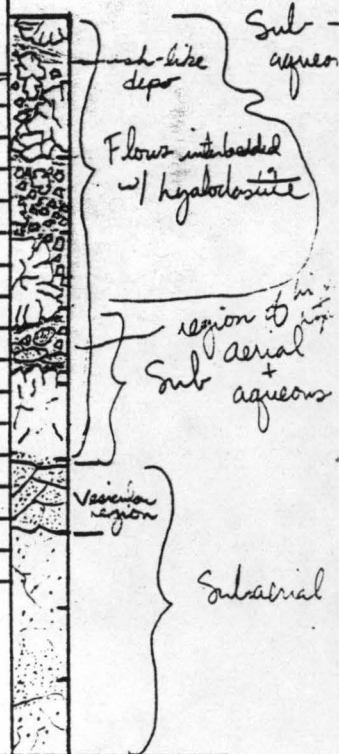 Sub-
aqueou
ash-like
depo
Flows interbedded
w/ hyaloclastite
region of
Sub aerial
+
aqueous
Vesicular
region
Subaerial